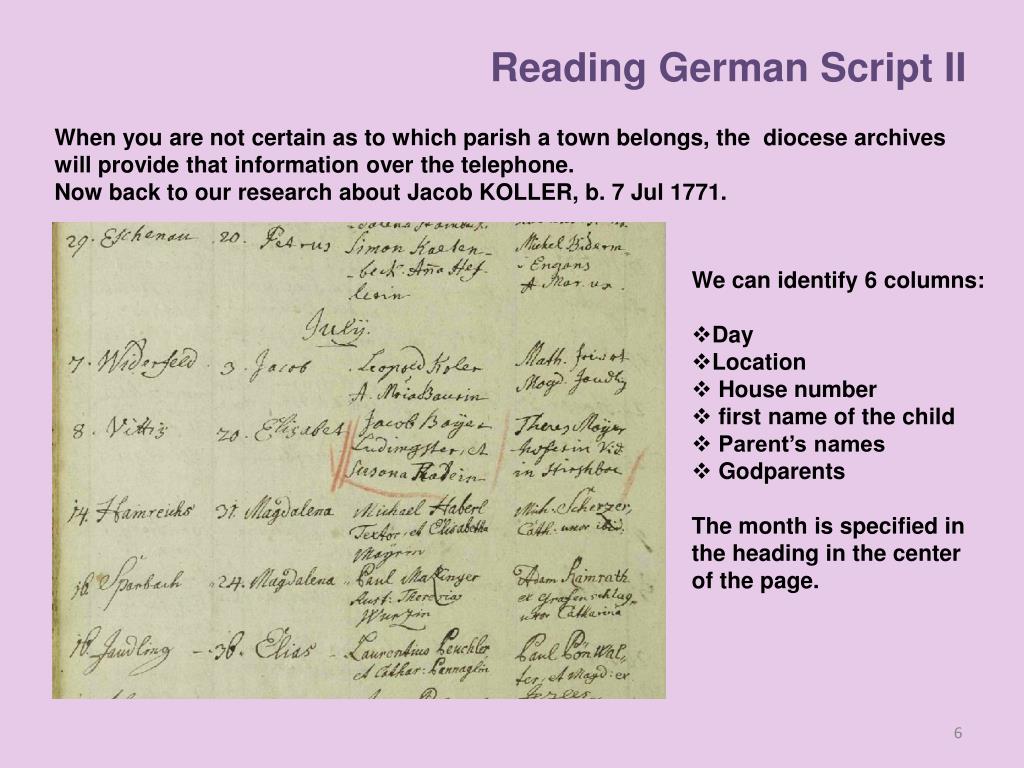 Reading German Script II
When you are not certain as to which parish a town belongs, the diocese archives
will provide that information over the telephone.
Now back to our research about Jacob KOLLER, b. 7 Jul 1771.
29. Eschenau 20. Petrus Simon Kasten-
beck. Aña Hef-
lerin
Michel
A
July.
7. Widerfeld 3. Jacob Leopold Koler
A.
Math.
Magd.
8. Vittis 20. Elisabet Jacob Boÿer
Ludimgster, et
Susana
Theres Moÿr
in Hirshbac
14. Hamreichs 31. Magdalena Michael Haberl
Textor, et Elisabetha
Mayrin
Mich. Scherzer,
Cath. uxor ibid.
16. Sparbach 24. Magdalena Paul Matzinger
Aust: Theresia
Wurzin
Adam Kamrath
ex Grafenschlag,
uxor Catharina
18. Jaudling 38. Elias Laurentius Leuchler
et Cathar: Pannaglin
Paul Pönwal,
ter, et Magd: ex
We can identify 6 columns:
❖Day
❖Location
❖ House number
❖ first name of the child
❖ Parent’s names
❖ Godparents
The month is specified in
the heading in the center
of the page.
6